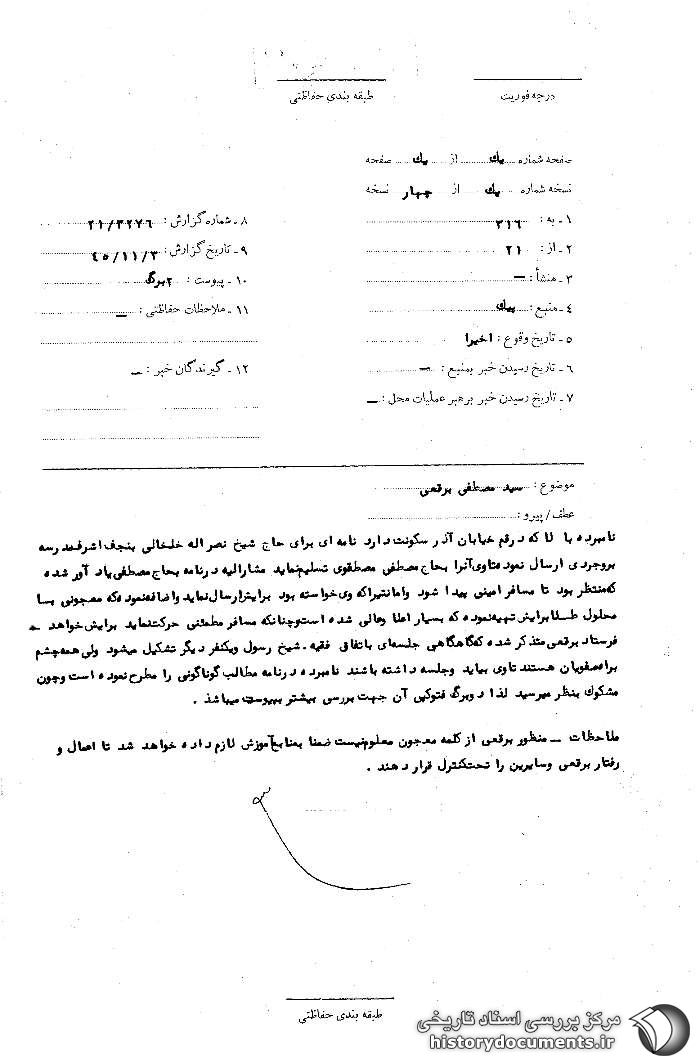 درجه فوریت
طبقه بندی حفاظتی
صفحه شماره یك از یك صفحه
نسخه شماره یك از چهار نسخه
۱ـ به : ۳۱۶
۲ـ از : ۲۱
۳ـ منشأ : ـ
۴ـ منبع : پیك
۵ـ تاریخ وقوع : اخیرا
۶ـ تاریخ رسیدن خبر بمنبع : ـ
۷ـ تاریخ رسیدن خبر برهبر عملیات محل : ـ
۸ـ شماره گزارش : ۲۱/۳۲۷۶
۹ـ تاریخ گزارش : ۴۵/۱۱/۳
۱۰ـ پیوست : ۲برگ
۱۱ـ ملاحظات حفاظتی : ـ
۱۲ـ گیرندگان خبر : ـ
موضوع : سید مصطفی برقعی
عطف/پیرو :
نامبرده بالا که در قم خیابان آذر سکونت دارد نامه ای برای حاج شیخ نصراله خلخالی بنجف اشرف مدرسه
بروجردی ارسال نموده تا وی آنرا بحاج مصطفی مصطفوی تسلیم نماید مشارالیه در نامه بحاج مصطفی یادآور شده
که منتظر بود تا مسافر امینی پیدا شود و امانتی را که وی خواسته بود برایش ارسال نماید و اضافه نموده که معجونی بسا
محلول طلا برایش تهیه نموده که بسیار اعلا و عالی شده است و چنانکه مسافر مطمئنی حرکت نماید برایش خواهد
فرستاد برقعی متذکر شده که گاهگاهی جلسه ای باتفاق فقیه ـ شیخ رسول و یکنفر دیگر تشکیل میشود ولی همه چشم
براه صفویان هستند تا وی بیاید و جلسه داشته باشند نامبرده در نامه مطالب گوناگونی را مطرح نموده است و چون
مشکوك بنظر میرسید لذا دو برگ فتوکپی آن جهت بررسی بیشتر بپیوست میباشد .
ملاحظات ـ منظور برقعی از کلمه معجون معلوم نیست ضمنا بمنابع آموزش لازم داده خواهد شد تا اعمال و
رفتار برقعی و سایرین را تحت کنترل قرار دهند .
طبقه بندی حفاظتی
مرکز بررسی اسناد تاریخی
historydocuments.ir